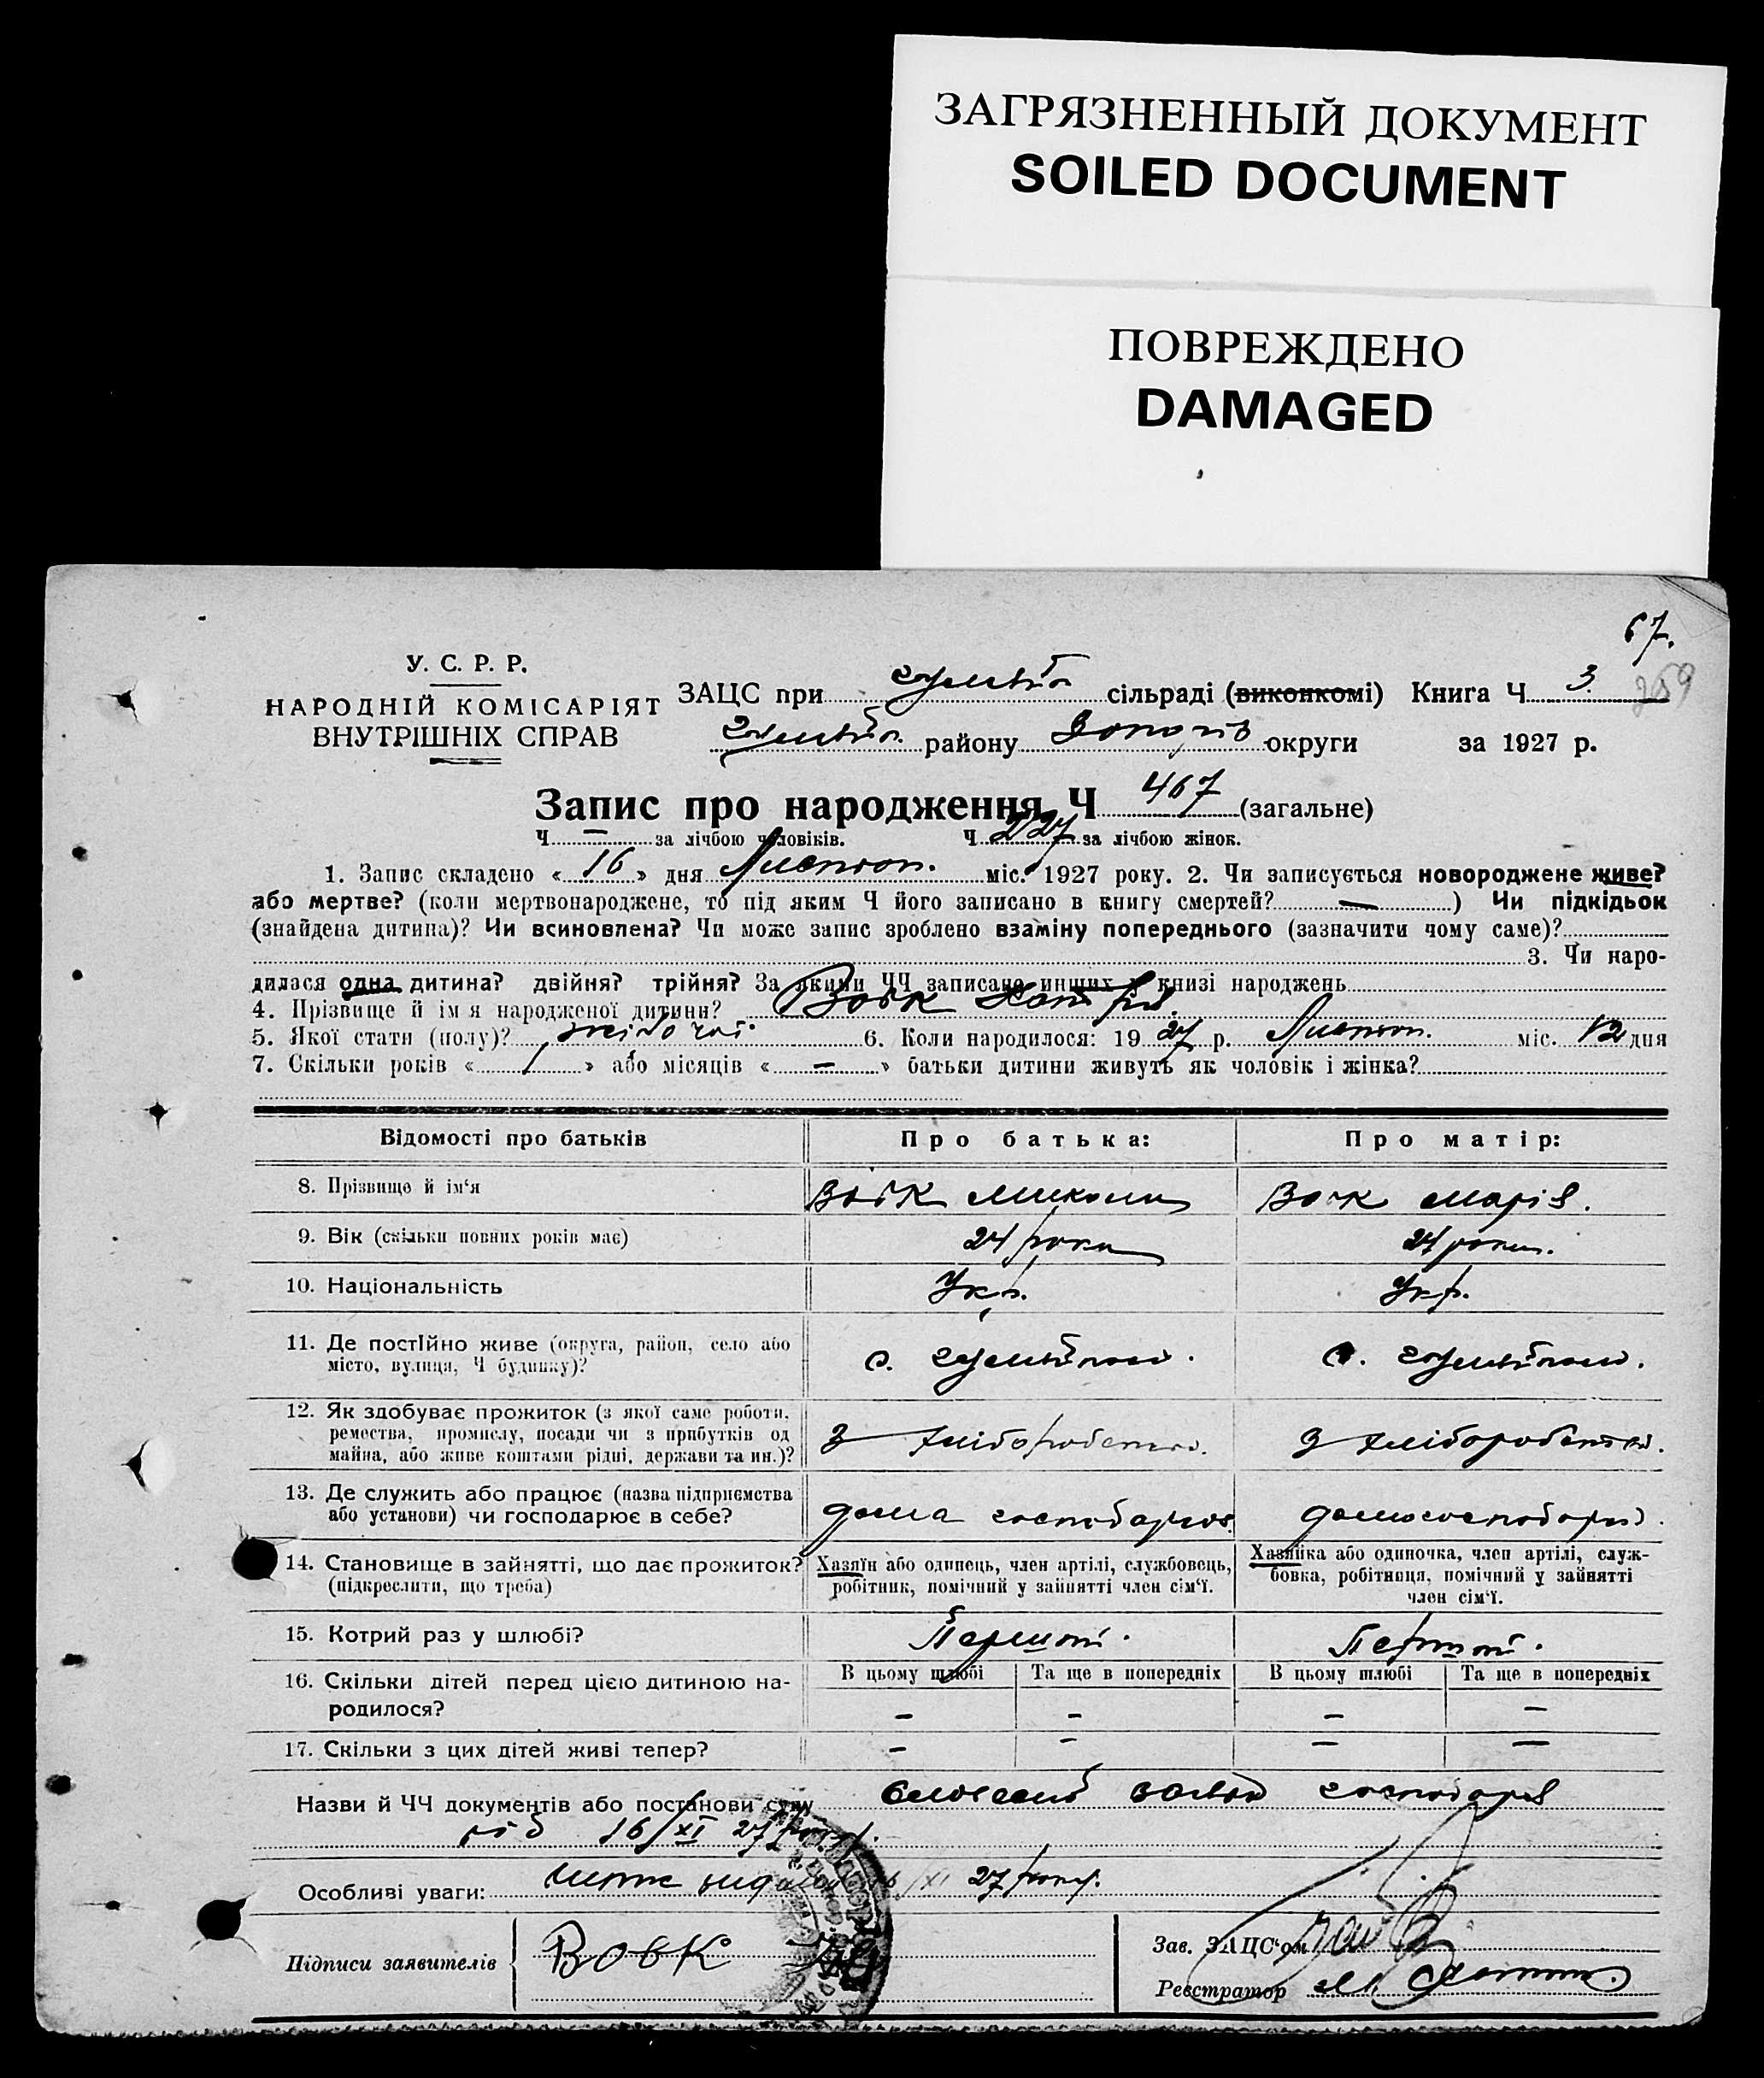 ЗАГРЯЗНЕННЫЙ ДОКУМЕНТ
SOILED DOCUMENT
ПОВРЕЖДЕНО
DAMAGED
67.
259
У. С. Р. Р.
НАРОДНІЙ КОМІСАРІЯТ
ВНУТРІШНІХ СПРАВ
ЗАЦС при сільраді (виконкомі) Книга Ч 3.
району округи за 1927 р.
Запис про народження Ч 467 (загальне)
Ч — за лічбою чоловіків. Ч 227 за лічбою жінок.
1. Запис складено « 16 » дня Листоп. міс. 1927 року. 2. Чи записується новороджене живе?
або мертве? (коли мертвонароджене, то під яким Ч його записано в книгу смертей? — ) Чи підкідьок
(знайдена дитина)? Чи всиновлена? Чи може запис зроблено взаміну попереднього (зазначити чому саме)?
3. Чи наро-
дилася одна дитина? двійня? трійня? За якими ЧЧ записано инших у книзі народжень
4. Прізвище й ім'я народженої дитини? Вовк
5. Якої стати (полу)? жіночої 6. Коли народилося: 19 27 р. Листоп. міс. 12 дня
7. Скільки років « 1 » або місяців « — » батьки дитини живуть як чоловік і жінка?
Відомості про батьків Про батька: Про матір:
8. Прізвище й ім'я Вовк Микола Вовк Марія.
9. Вік (скільки повних років має) 24 роки 24 роки.
10. Національність Укр. Укр.
11. Де постійно живе (округа, район, село або
місто, вулиця, Ч будинку)? с. с.
12. Як здобуває прожиток (з якої саме роботи,
ремества, промислу, посади чи з прибутків од
майна, або живе коштами рідні, держави та ин.)? З хліборобства. З хліборобства.
13. Де служить або працює (назва підприємства
або установи) чи господарює в себе? дома господарює домогосподарка.
14. Становище в зайнятті, що дає прожиток? Хазяїн або одинець, член артілі, службовець, Хазяйка або одиночка, член артілі, служ-
(підкреслити, що треба) робітник, помічний у зайнятті член сім'ї. бовка, робітниця, помічний у зайнятті
член сім'ї.
15. Котрий раз у шлюбі? Перший. Перший.
16. Скільки дітей перед цією дитиною на- В цьому шлюбі Та ще в попередніх В цьому шлюбі Та ще в попередніх
родилося? — — — —
17. Скільки з цих дітей живі тепер? — — — —
Назви й ЧЧ документів або постанови суду господаря
16/XI 27 року.
Особливі уваги: 16/XI 27 року.
Підписи заявителів Вовк
Зав. ЗАЦС'ом
Реєстратор